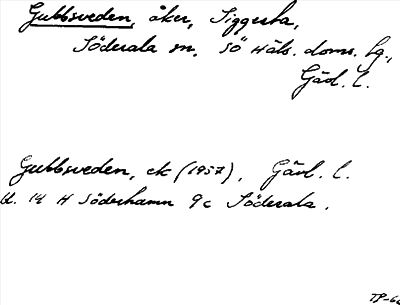 Gubbsveden, åker, Siggesta,
Söderala sn, Sö Häls. doms. lg.,
Gävl. l.
Gubbsveden, ek (1957). Gävl. l.
U. 14 H Söderhamn 9c Söderala.